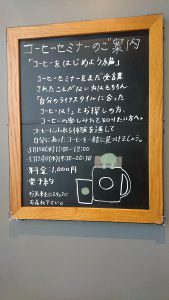 コーヒーセミナーのご案内
「コーヒーをはじめよう編」
コーヒーセミナーをまだ受講
されたことがない方はもちろん
「自分のライフスタイルに合った
コーヒーは?」とお探しの方、
コーヒーの楽しみ方を知りたい方へ。
コーヒーにふれる体験を通して
自分にあったコーヒーを一緒に見つけましょう。
11:00-12:00
19:30-20:30
料金 1,000円
要予約
お気軽にスタッフに
お尋ね下さい。